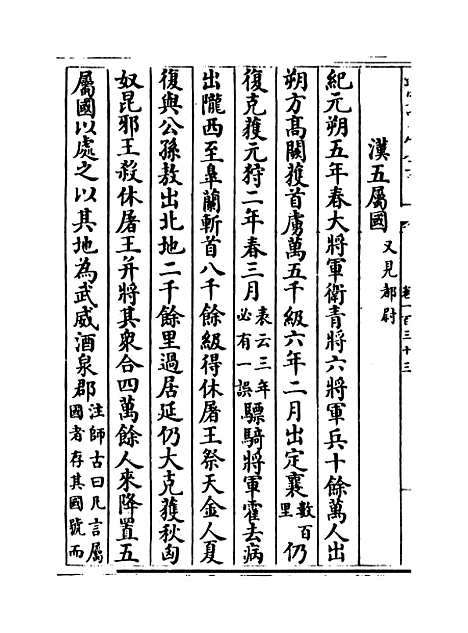 漢五屬國又見都尉
紀元朔五年春大將軍衛青將六將軍兵十餘萬人出
朔方髙闕獲首虜萬五千級六年二月出定襄數百里仍
復克獲元狩二年春三月表云三年必有一誤驃騎將軍霍去病
出隴西至臯蘭斬首八千餘級得休屠王祭天金人夏
復與公孫敖出北地二千餘里過居延仍大克獲秋匈
奴昆邪王殺休屠王并將其衆合四萬餘人來降置五
屬國以處之以其地為武威酒泉郡注師古曰凡言屬國者存其國號而